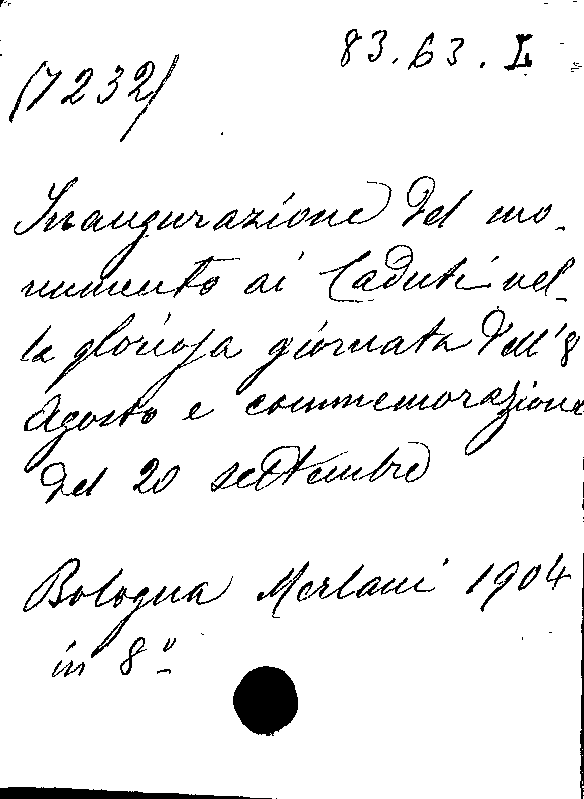 83.63.I.
(7232)
Inaugurazione del mo-
numento ai Caduti nel-
la gloriosa giornata dell'8
Agosto e commemorazione
del 20 settembre
Bologna Merlani 1904
in 8º